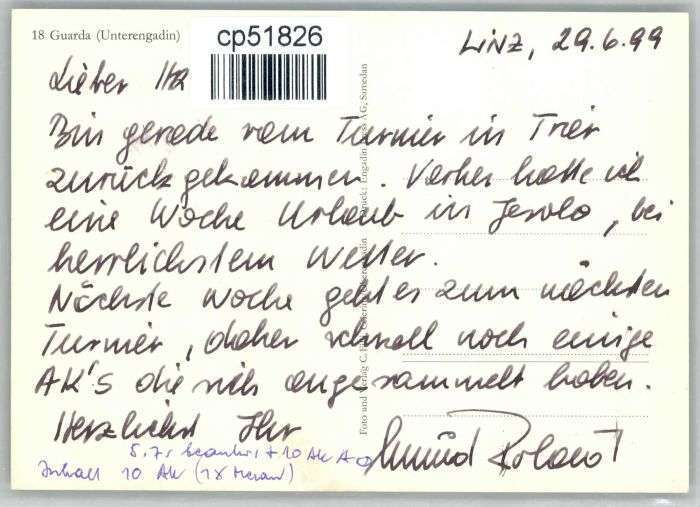 18 Guarda (Unterengadin)
cp51826
Linz, 29.6.99
Lieber
Bin gerade vom Turnier in Trier
zurückgekommen. Vorher hatte ich
eine Woche Urlaub in Jesolo, bei
herrlichstem Wetter.
Nächste Woche geht es zum nächsten
Turnier, daher schnell noch einige
AK's die sich angesammelt haben.
Herzlichst Ihr
5.7. beantw. + 10 AK
Inhalt 10 AK (1x Meran)
Foto und Verlag C. Engadin Press AG, Samedan